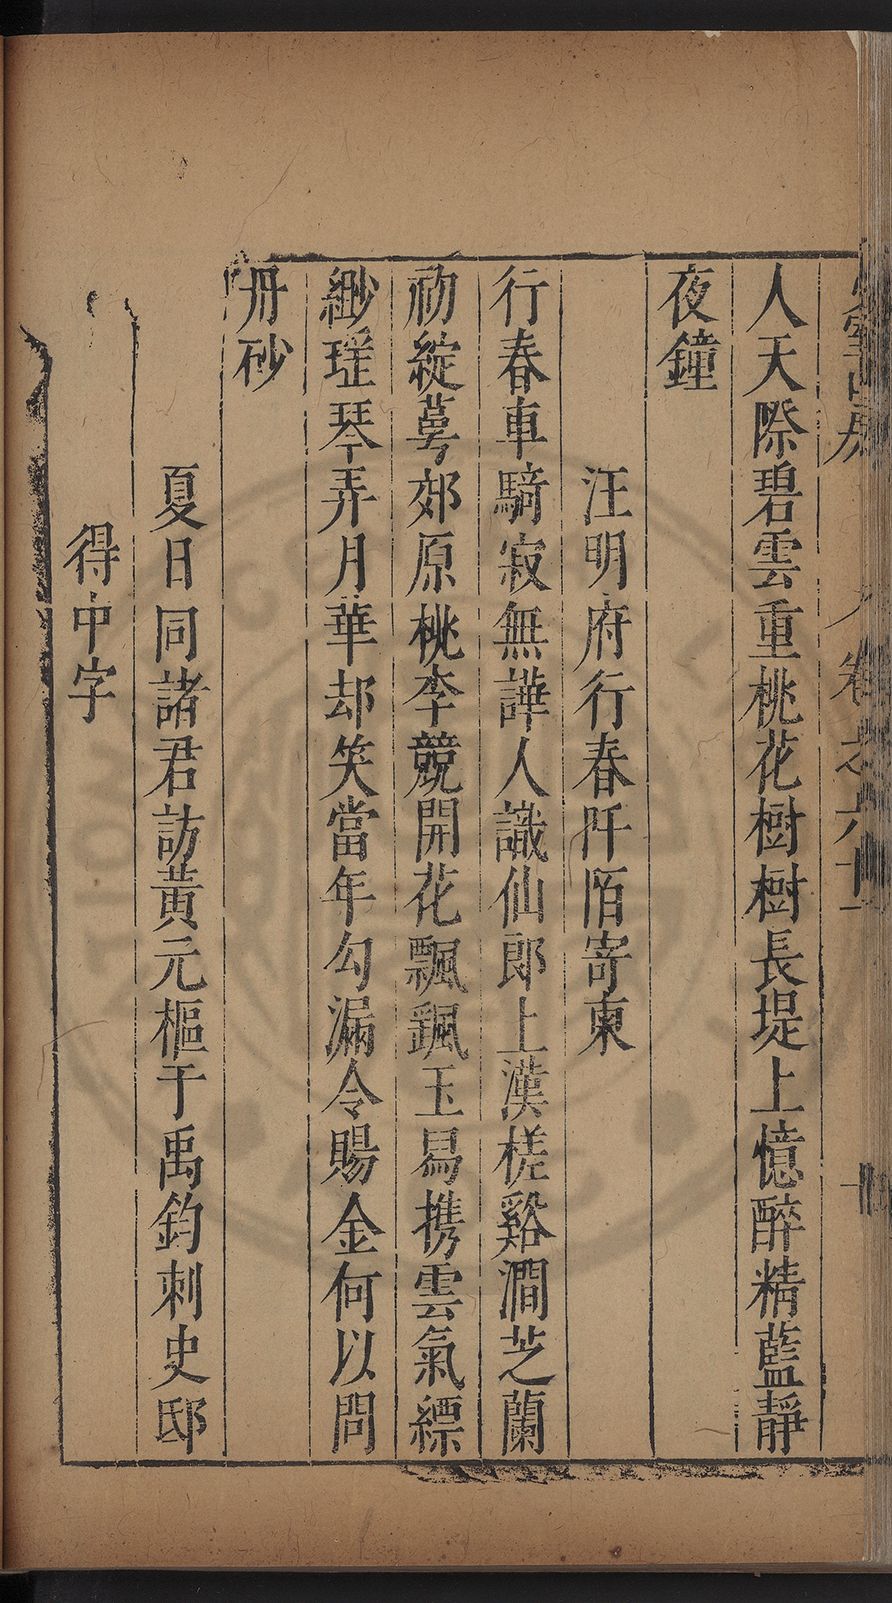 卷之六
人天際碧雲重桃花樹樹長堤上憶醉精藍靜
夜鐘
汪明府行春阡陌寄柬
行春車騎寂無譁人識仙郎上漢槎谿澗芝蘭
初綻萼郊原桃李競開花飄颻玉舃携雲氣縹
緲瑤琴弄月華却笑當年勾漏令賜金何以問
丹砂
夏日同諸君訪黃元樞于禹鈞刺史邸
得中字